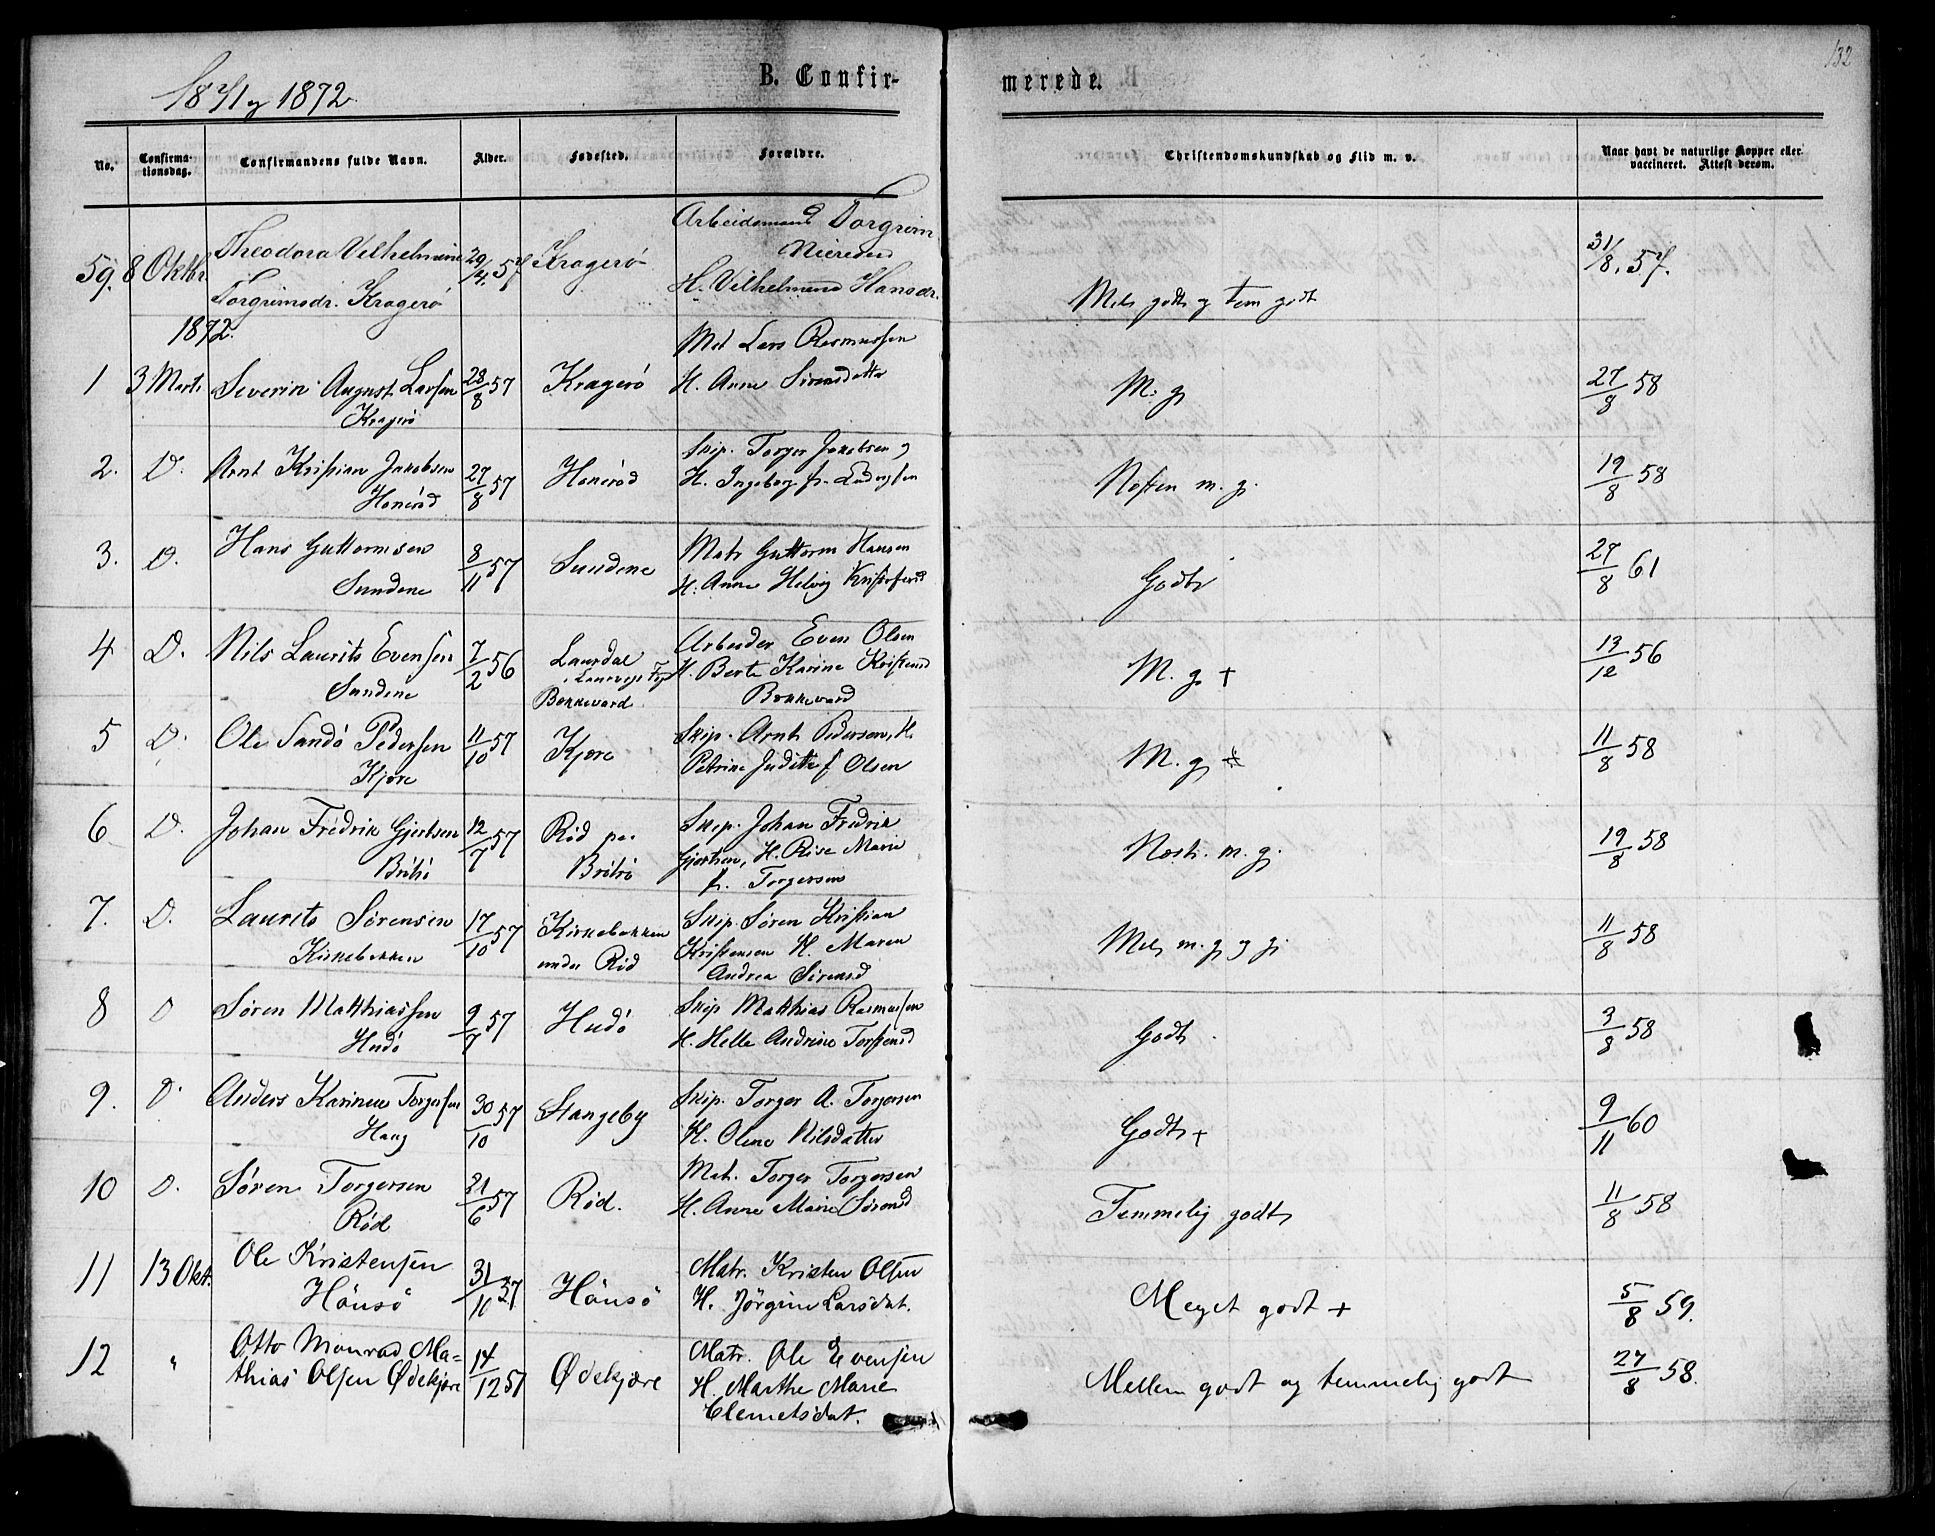 132
1871 og 1872
B. Confirmerede.
No. Confirmationsdag. Confirmandens fulde Navn. Alder. Fødested. Forældre. Christendomskundskab og Flid m. v. Naar havt de naturlige Kopper eller vaccineret. Attest derom.
59. 8 Oktbr. Theodora Vilhelmine 29/4 57 Kragerö Arbeidsmand Torgrim 31/8 57.
Torgrimsdr. Kragerö H. Vilhelmine Hansdr. Mel. godt og tem godt
1872.
Mat Lars Rasmussen
1 3 Marts Severin August Larsen 28/8 57 Kragerö H. Anne Sörensdatter M. g. 27/8 58
Kragerö
2. D. Arnt Kristian Jakobsen 27/8 57 Haneröd Skip. Torger Jakobsen og Næsten m. g. 19/8 58
Haneröd H. Ingeborg f. Ludvigsen
3. D. Hans Guttormsen 8/11 57 Sundene Mat. Guttorm Hansen Godt 27/8 61
Sundene H. Anne Helvig Kristofersd
4 D. Nils Laurits Evensen 7/2 56 Laurdal Arbeider Even Olsen M. g. + 13/12 56
Sundene H. Berte Karine Kristensd
Bokkevard Bokkevard
5 D. Ole Sandö Pedersen 11/10 57 Kjøre Skip. Arnt Pedersen, H. M. g. + 11/8 58
Kjøre Petrine Judithe f. Olsen
6 D. Johan Fredrik Gjertsen 12/7 57 Röd paa Skip. Johan Fredrik Næst. m. g. 19/8 58
Bråtö Bråtö Gjertsen, H. Rise Marie
f. Torgersen
7. D. Laurits Sørensen 17/10 57 Kirkebakken Skip. Søren Kristian Mel. m. g. og g. 11/8 58
Kirkebakken under Röd Kristensen H. Maren
Andrea Sörensd
8 D Søren Matthiassen 9/7 57 Hudö Skip Matthias Rasmussen Godt 3/8 58
Hudö H. Helle Andrine Torstensd
9. D. Anders Karinius Torgersen 30/10 57 Stangeby Skip. Torger A. Torgersen Godt + 9/11 60
Haug H. Olene Nilsdatter
10 D. Søren Torgersen 21/6 57 Röd. Mat. Torger Torgersen Temmelig godt 11/8 58
Röd H. Anne Marie Sörensd
11 13 Okt. Ole Kristensen 31/10 57 Hönsö Matr. Kristen Olsen Meget godt + 5/8 59.
Hönsö H. Jörgine Larsdat.
12 " Otto Monrad Ma= 14/12 57 Ødekjære Matr. Ole Evensen Mellem godt og temmelig godt 27/8 58.
thias Olsen Ødekjære H. Marthe Marie
Clemetsdat.